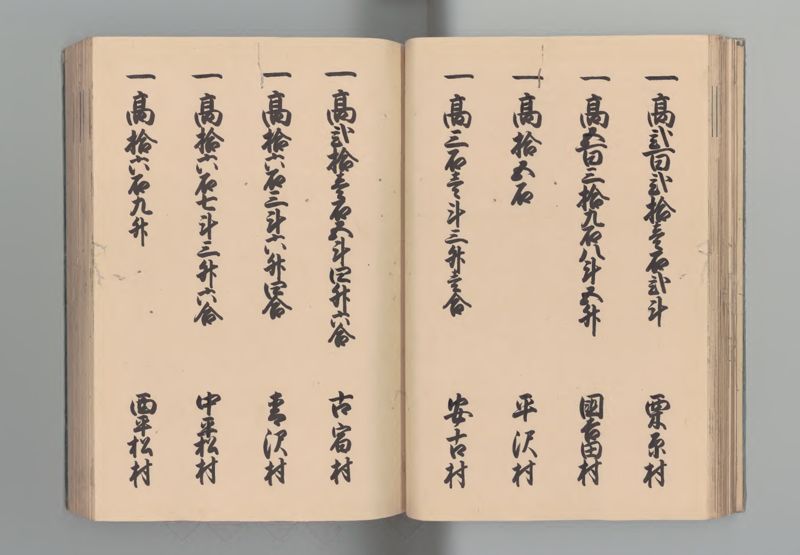 一高弐百弐拾壱石弐斗 栗原村
一高五百三拾九石八斗五升 国吉田村
一高拾五石 平沢村
一高三石壱斗三升壱合 安古村
一高弐拾壱石五斗四升六合 古宿村
一高拾六石三斗六升四合 青沢村
一高拾六石七斗三升六合 中平松村
一高拾六石九升 西平松村